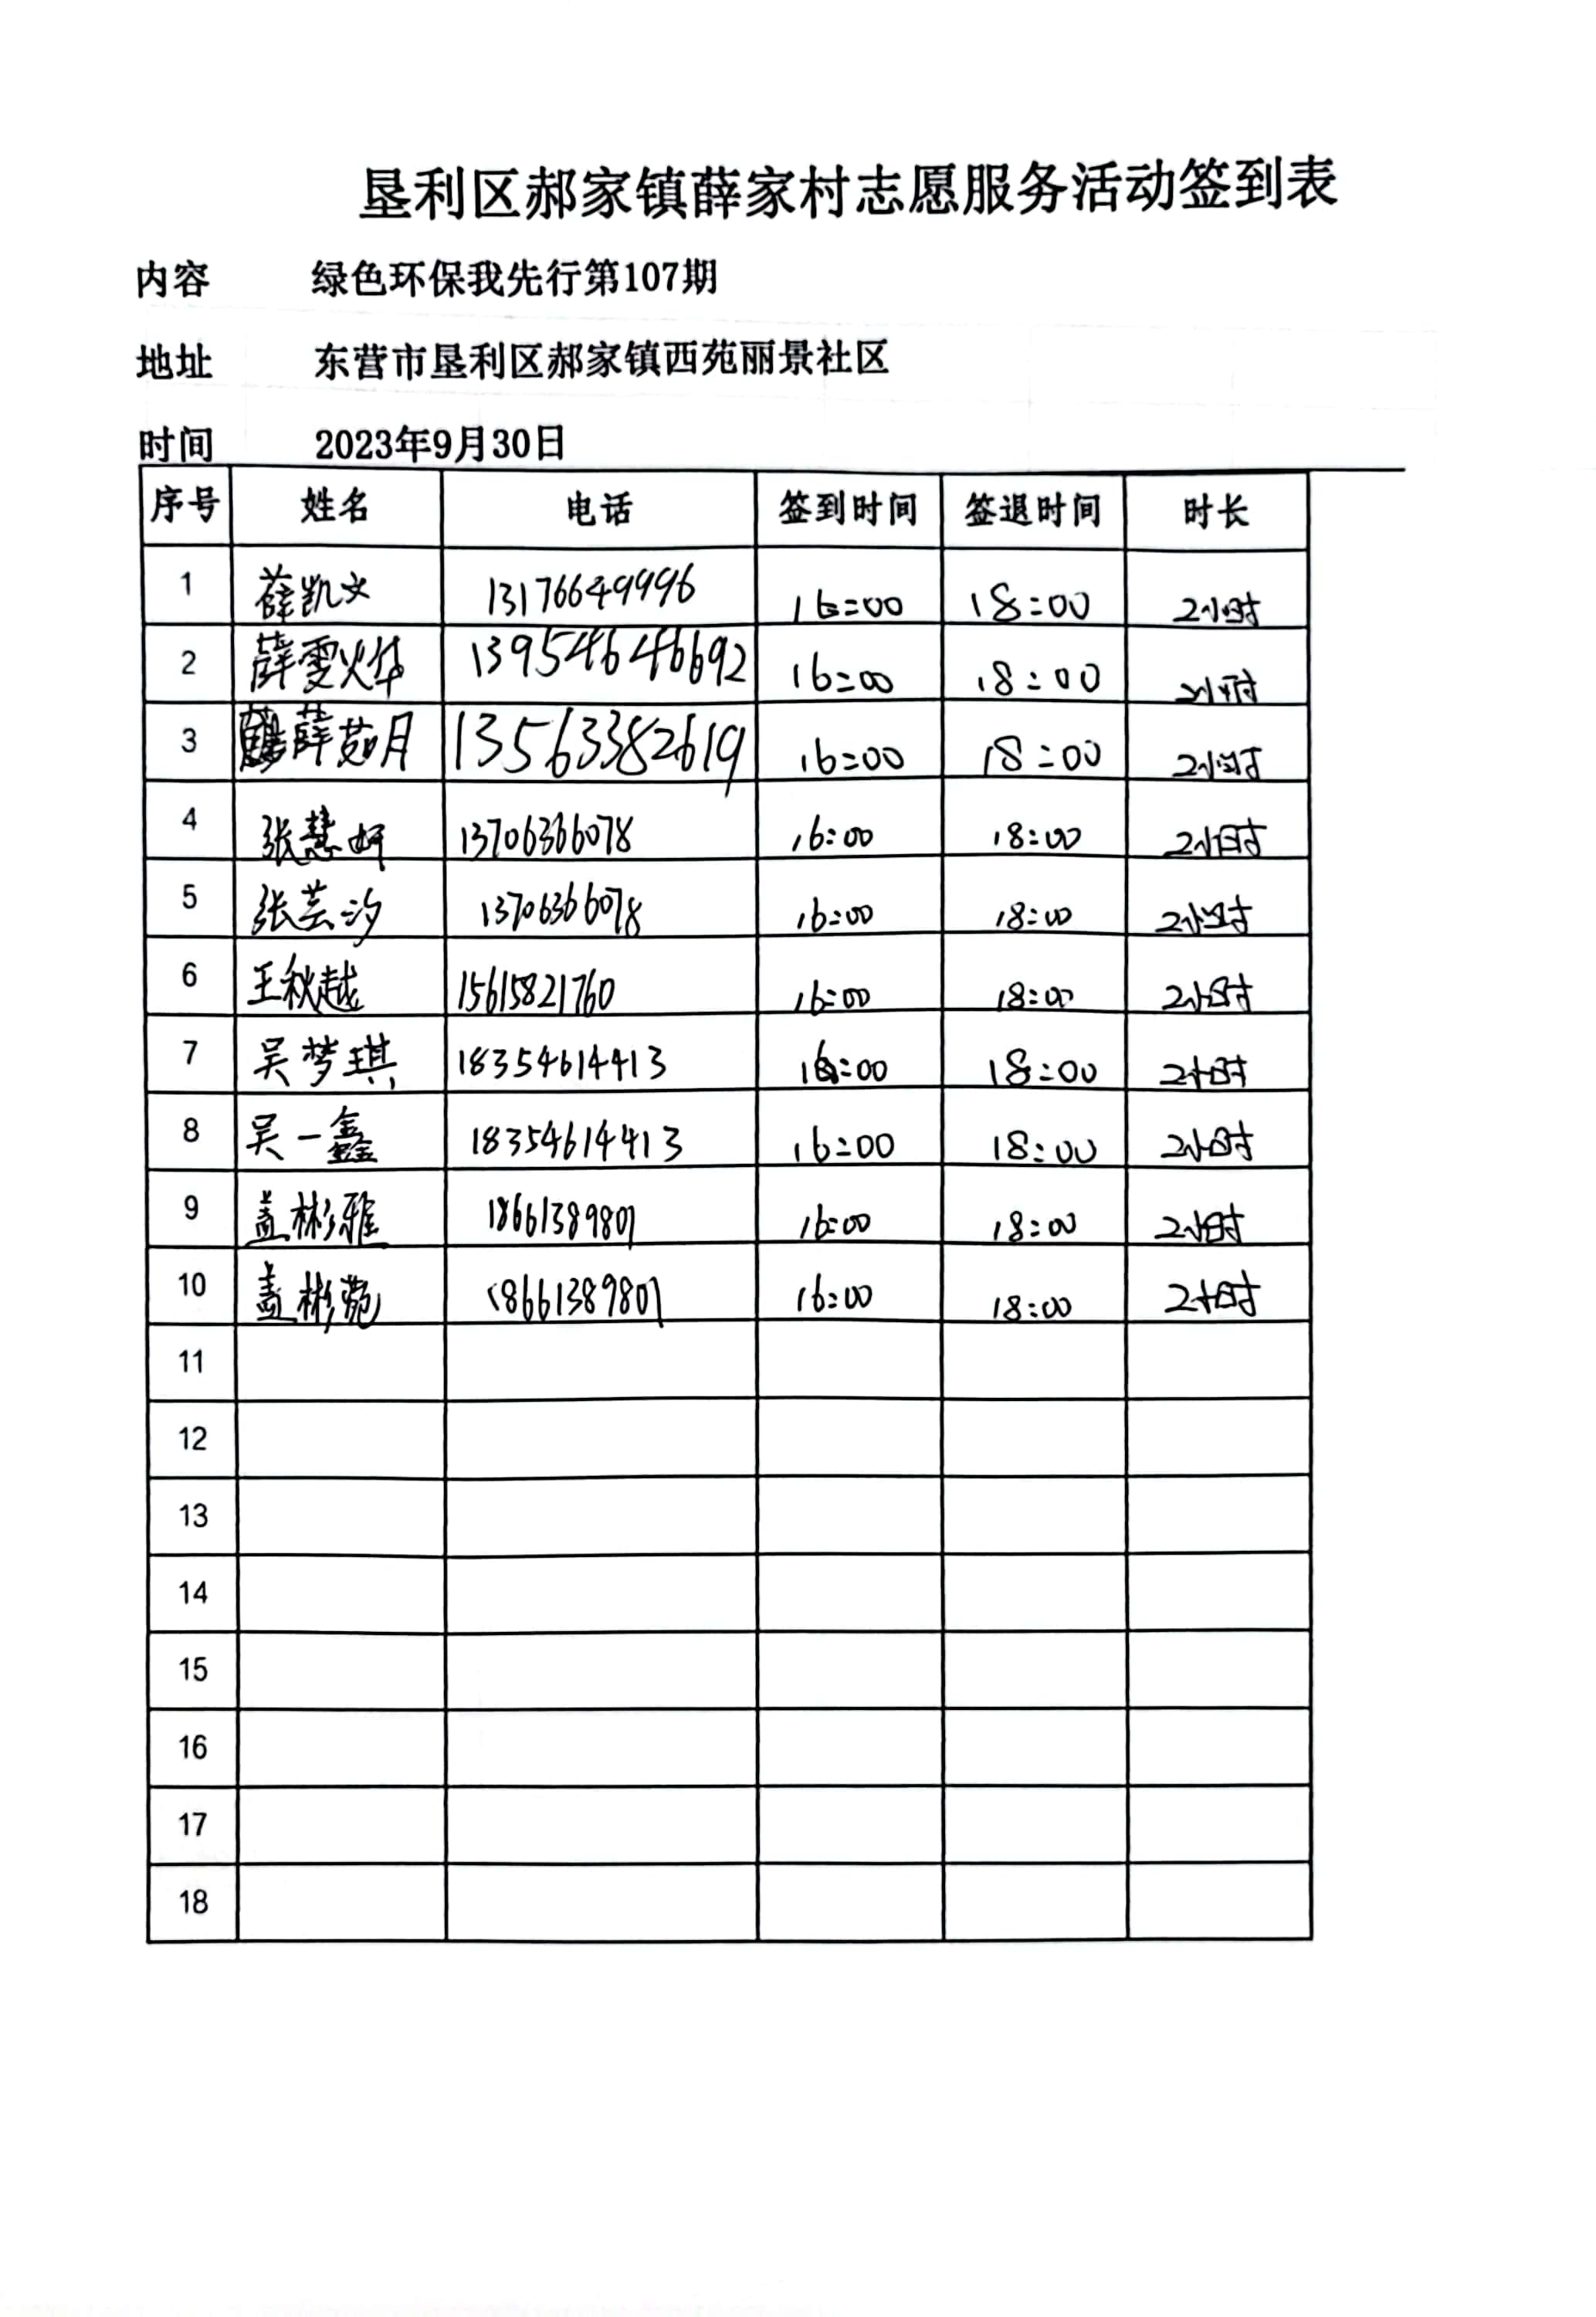 垦利区郝家镇薛家村志愿服务活动签到表
内容 绿色环保我先行第107期
地址 东营市垦利区郝家镇西苑丽景社区
时间 2023年9月30日
序号 姓名 电话 签到时间 签退时间 时长
1 薛凯文 13176649996 16:00 18:00 2小时
2 薛雯烨 13954646692 16:00 18:00 2小时
3 薛茹月 13563382619 16:00 18:00 2小时
4 张慧妍 13706366078 16:00 18:00 2小时
5 张芸汐 13706366078 16:00 18:00 2小时
6 王秋越 15615821760 16:00 18:00 2小时
7 吴梦琪 18354614413 16:00 18:00 2小时
8 吴一鑫 18354614413 16:00 18:00 2小时
9 盖彬雅 18661389801 16:00 18:00 2小时
10 盖彬菀 18661389801 16:00 18:00 2小时
11
12
13
14
15
16
17
18